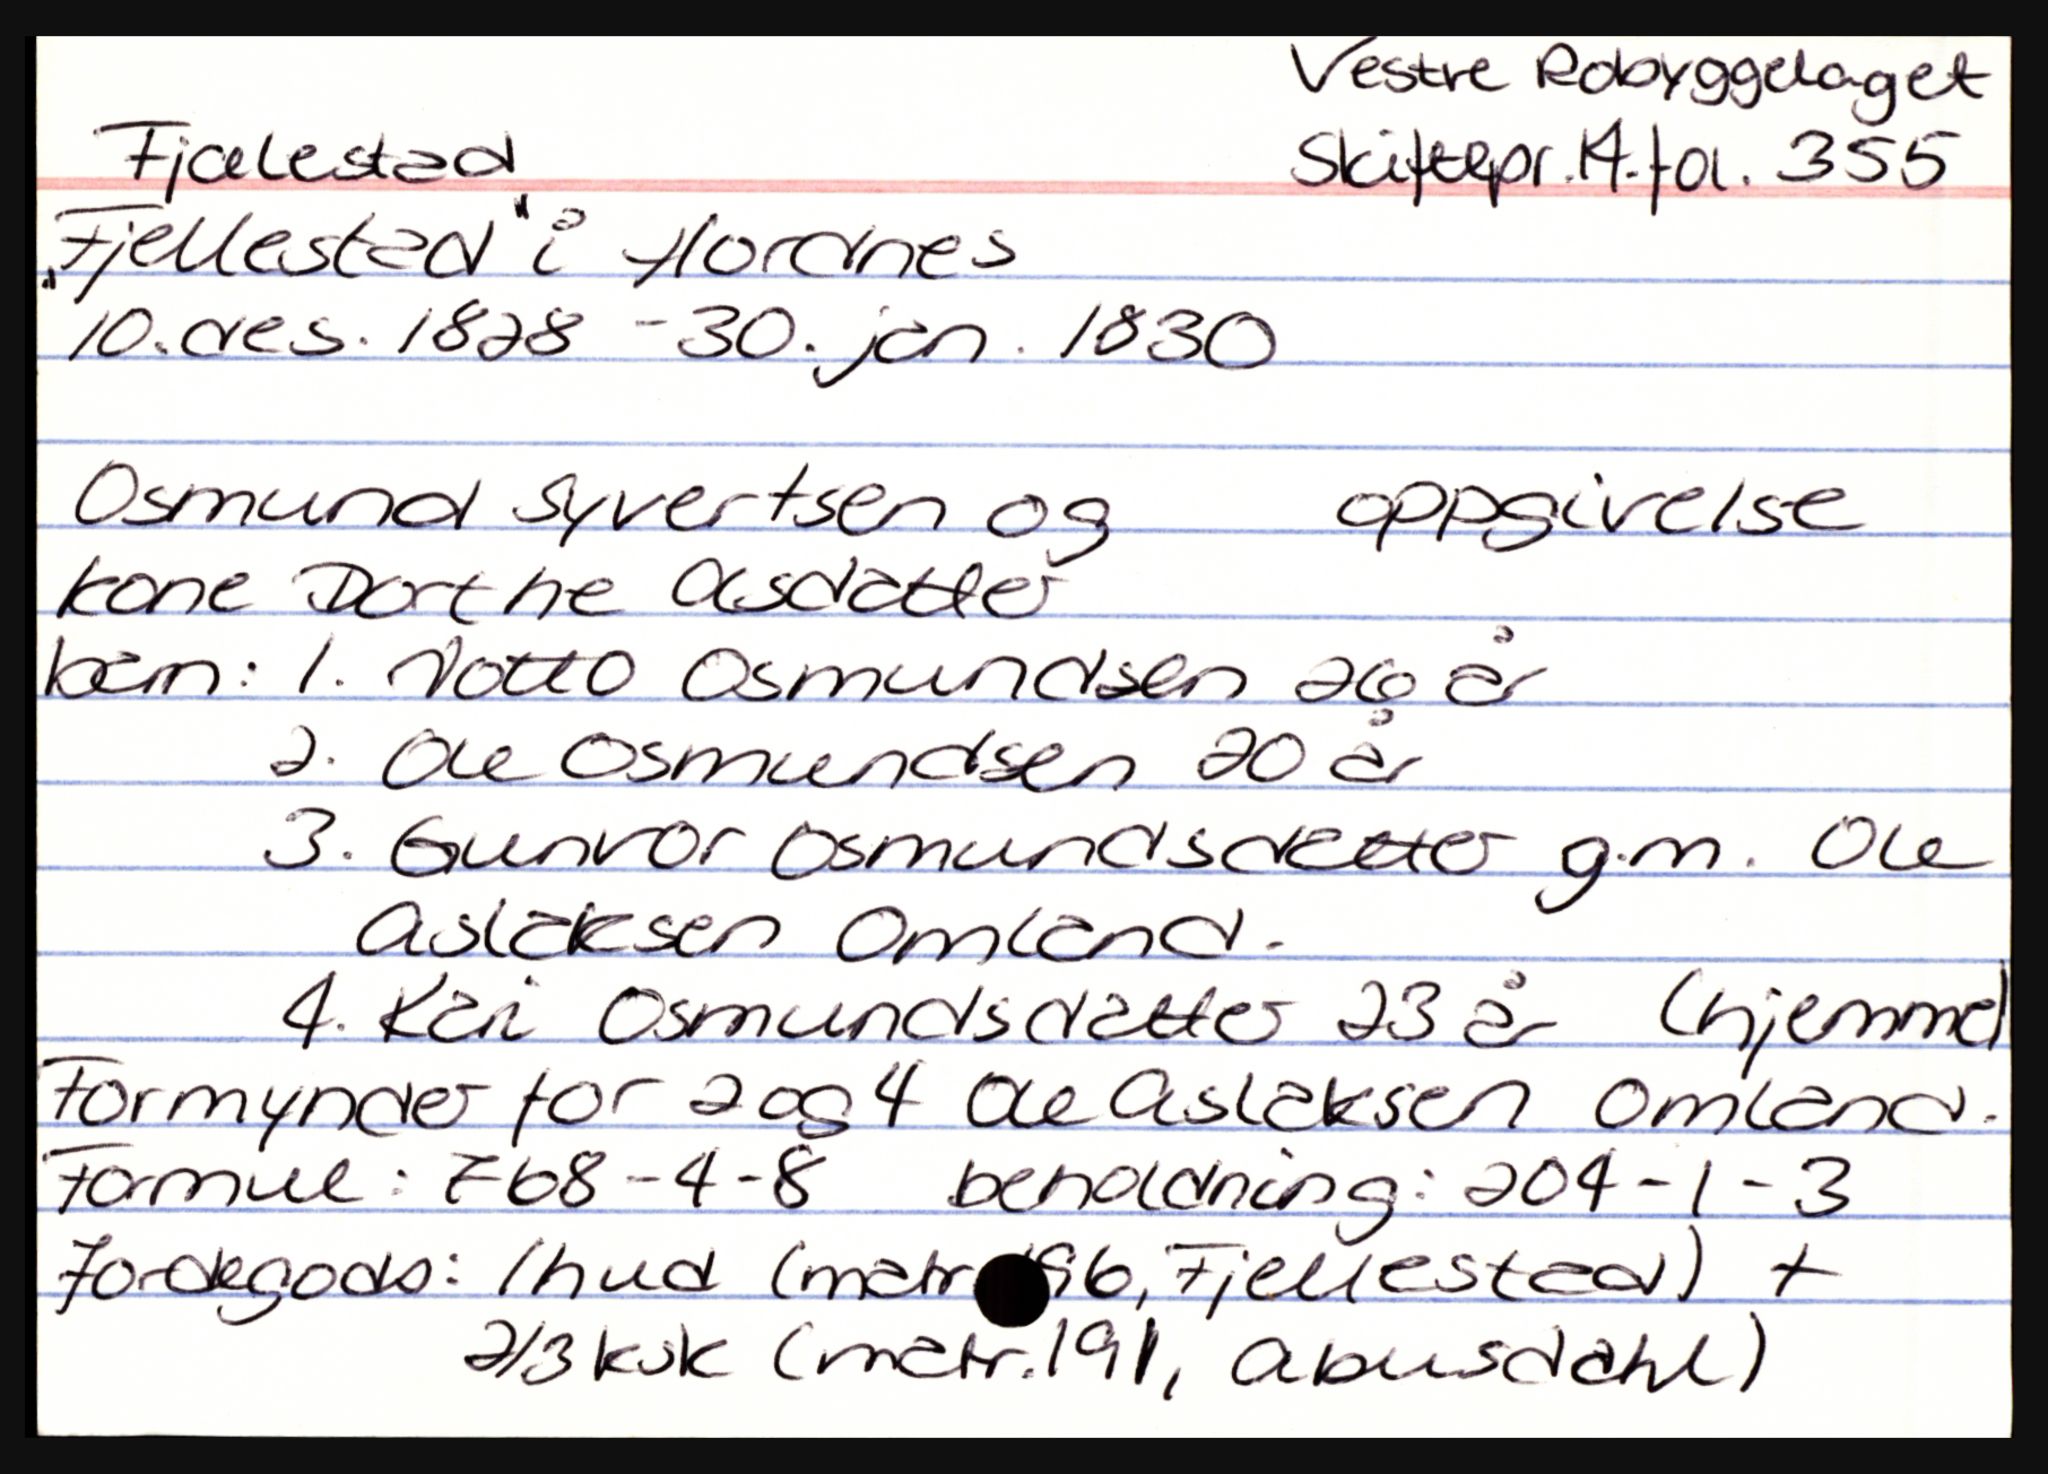 Vestre Robyggelaget
Fjælestad Skiftepr. 14. fol. 355
"Fjellestad" i Hordnes
10. des. 1828 - 30. jan. 1830
Osmund Syvertsen og oppgivelse
kone Dorthe Asdatter
barn: 1. Notto Osmundsen 26 år
2. Ole Osmundsen 20 år
3. Gunvor Osmundsdatter g.m. Ole
Aslaksen Omland.
4. Kari Osmundsdatter 23 år (hjemme)
Formynder for 2 og 4 Ole Aslaksen Omland.
Formue: 768-4-8 beholdning: 204-1-3
Jordegods: 1 hud (matr. 196, Fjellestad) +
2/3 ksk (matr. 191, Abusdahl)